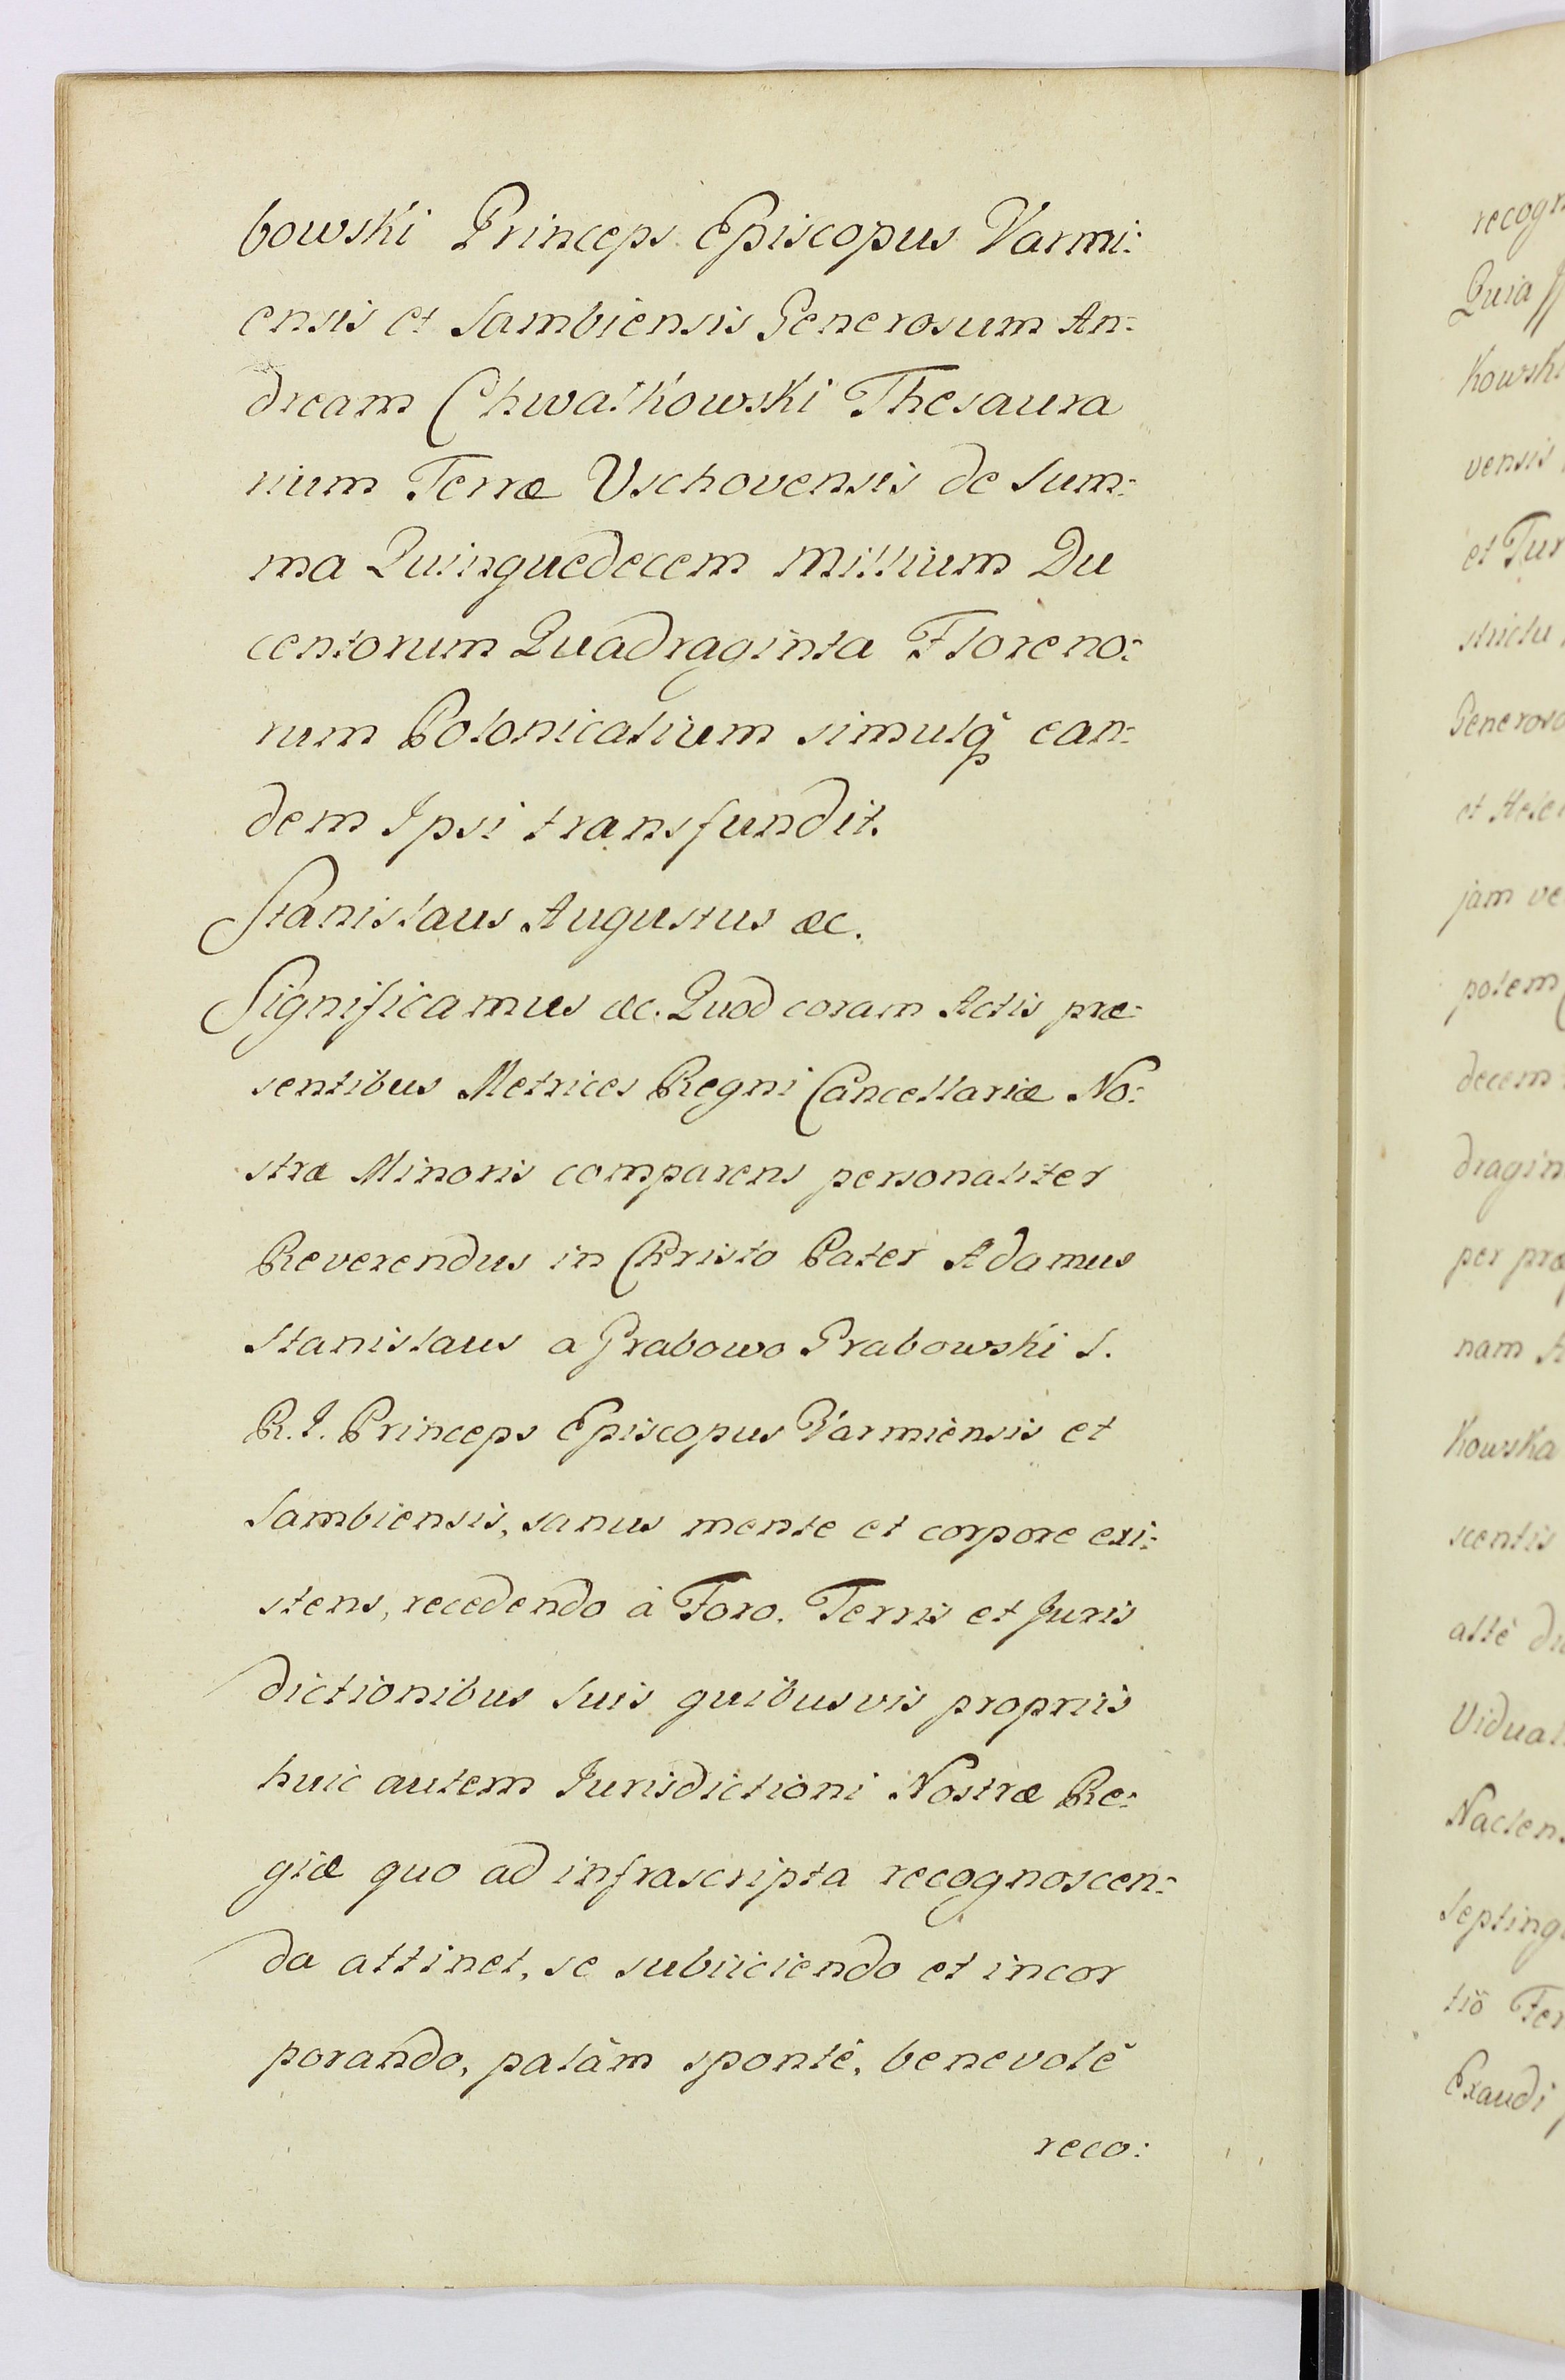 bowski Princeps Episcopus Varmi:
ensis et Sambiensis Generosum An:
dream Chwalkowski Thesaura
rium Terræ Vschovensis de Sum:
ma Quinquedecem Millium Du
centorum Quadraginta Floreno:
rum Polonicalium simulq̃ ean:
dem Ipsi transfundit.
Stanislaus Augustus &c.
Significamus &c. Quod coram Actis præ:
sentibus Metrices Regni Cancellariæ No:
stræ Minoris comparens personaliter
Reverendus in Christo Pater Adamus
Stanislaus a Grabowo Grabowski S.
R. I. Princeps Episcopus Varmiensis et
Sambiensis, sanus mente et corpore exi:
stens, recedendo à Foro, Terris et Juris
dictionibus Suis quibusvis propriis
huic autem Jurisdictioni Nostræ Re:
giæ quo ad infrascripta recognoscen:
da attinet, se subiiciendo et incor
porando, palàm spontè, benevolè
reco:
recogn
Quia
kowski
vensis
et Tur
strictu
Generoso
jam ve
potem
decem
dragin
per præ
nam A
kowska
scentis
attè du
Vidual
Naclen
Septing
tiõ Fer
Exaudi